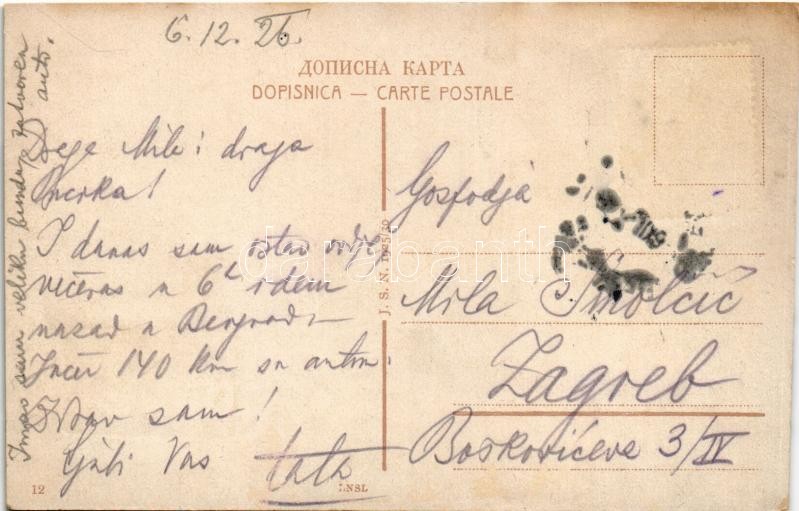 6.12.26.
ДОПИСНА КАРТА
DOPISNICA — CARTE POSTALE
Mile i draga
I danas sam ostao ovdje
večeras u 6h idem
nazad u Beograd
140 km sa autom.
Zdrav sam!
Ljubi Vas
tata
Imao sam veliku bundu, zatvoren
auto.
J. S. N. 1925/30
Gospodja
Mila Smolčić
Zagreb
Boskovićeva 3/IV
12
darabanth